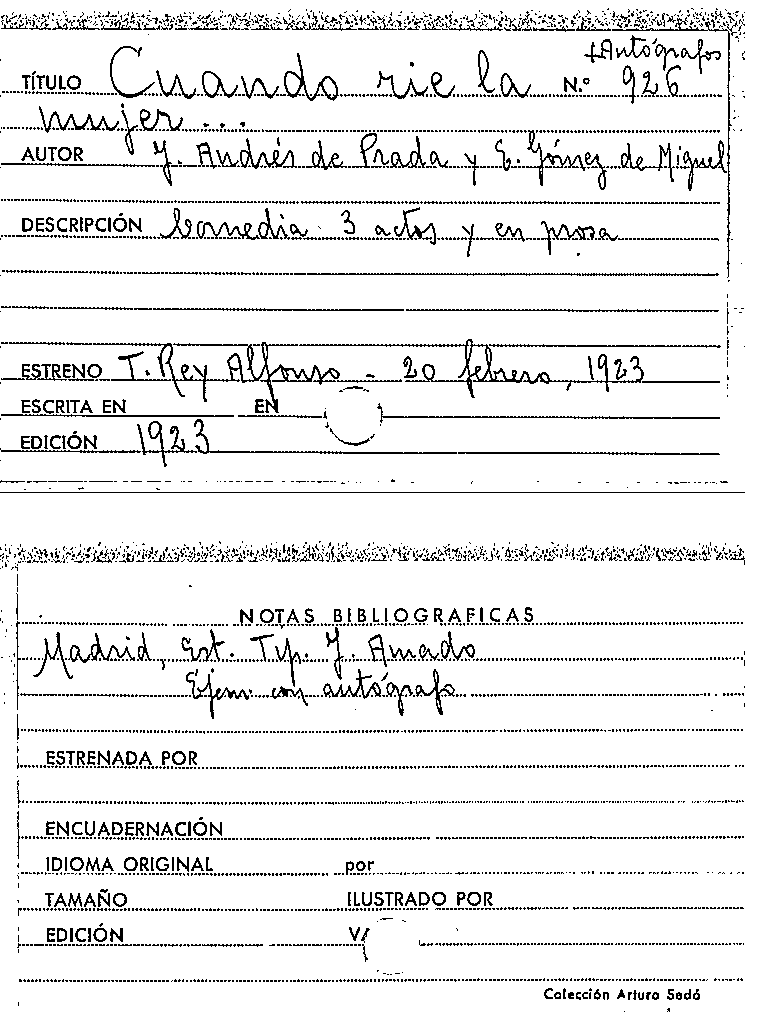 +Autógrafos
TÍTULO Cuando rie la N.º 926
mujer...
AUTOR J. Andrés de Prada y E. Gómez de Miguel
DESCRIPCIÓN Comedia 3 actos y en prosa
ESTRENO T. Rey Alfonso - 20 febrero, 1923
ESCRITA EN EN
EDICIÓN 1923
NOTAS BIBLIOGRAFICAS
Madrid, Est. Tip. J. Amado
Ejem. con autógrafo
ESTRENADA POR
ENCUADERNACIÓN
IDIOMA ORIGINAL por
TAMAÑO ILUSTRADO POR
EDICIÓN V/
Colección Arturo Sedó